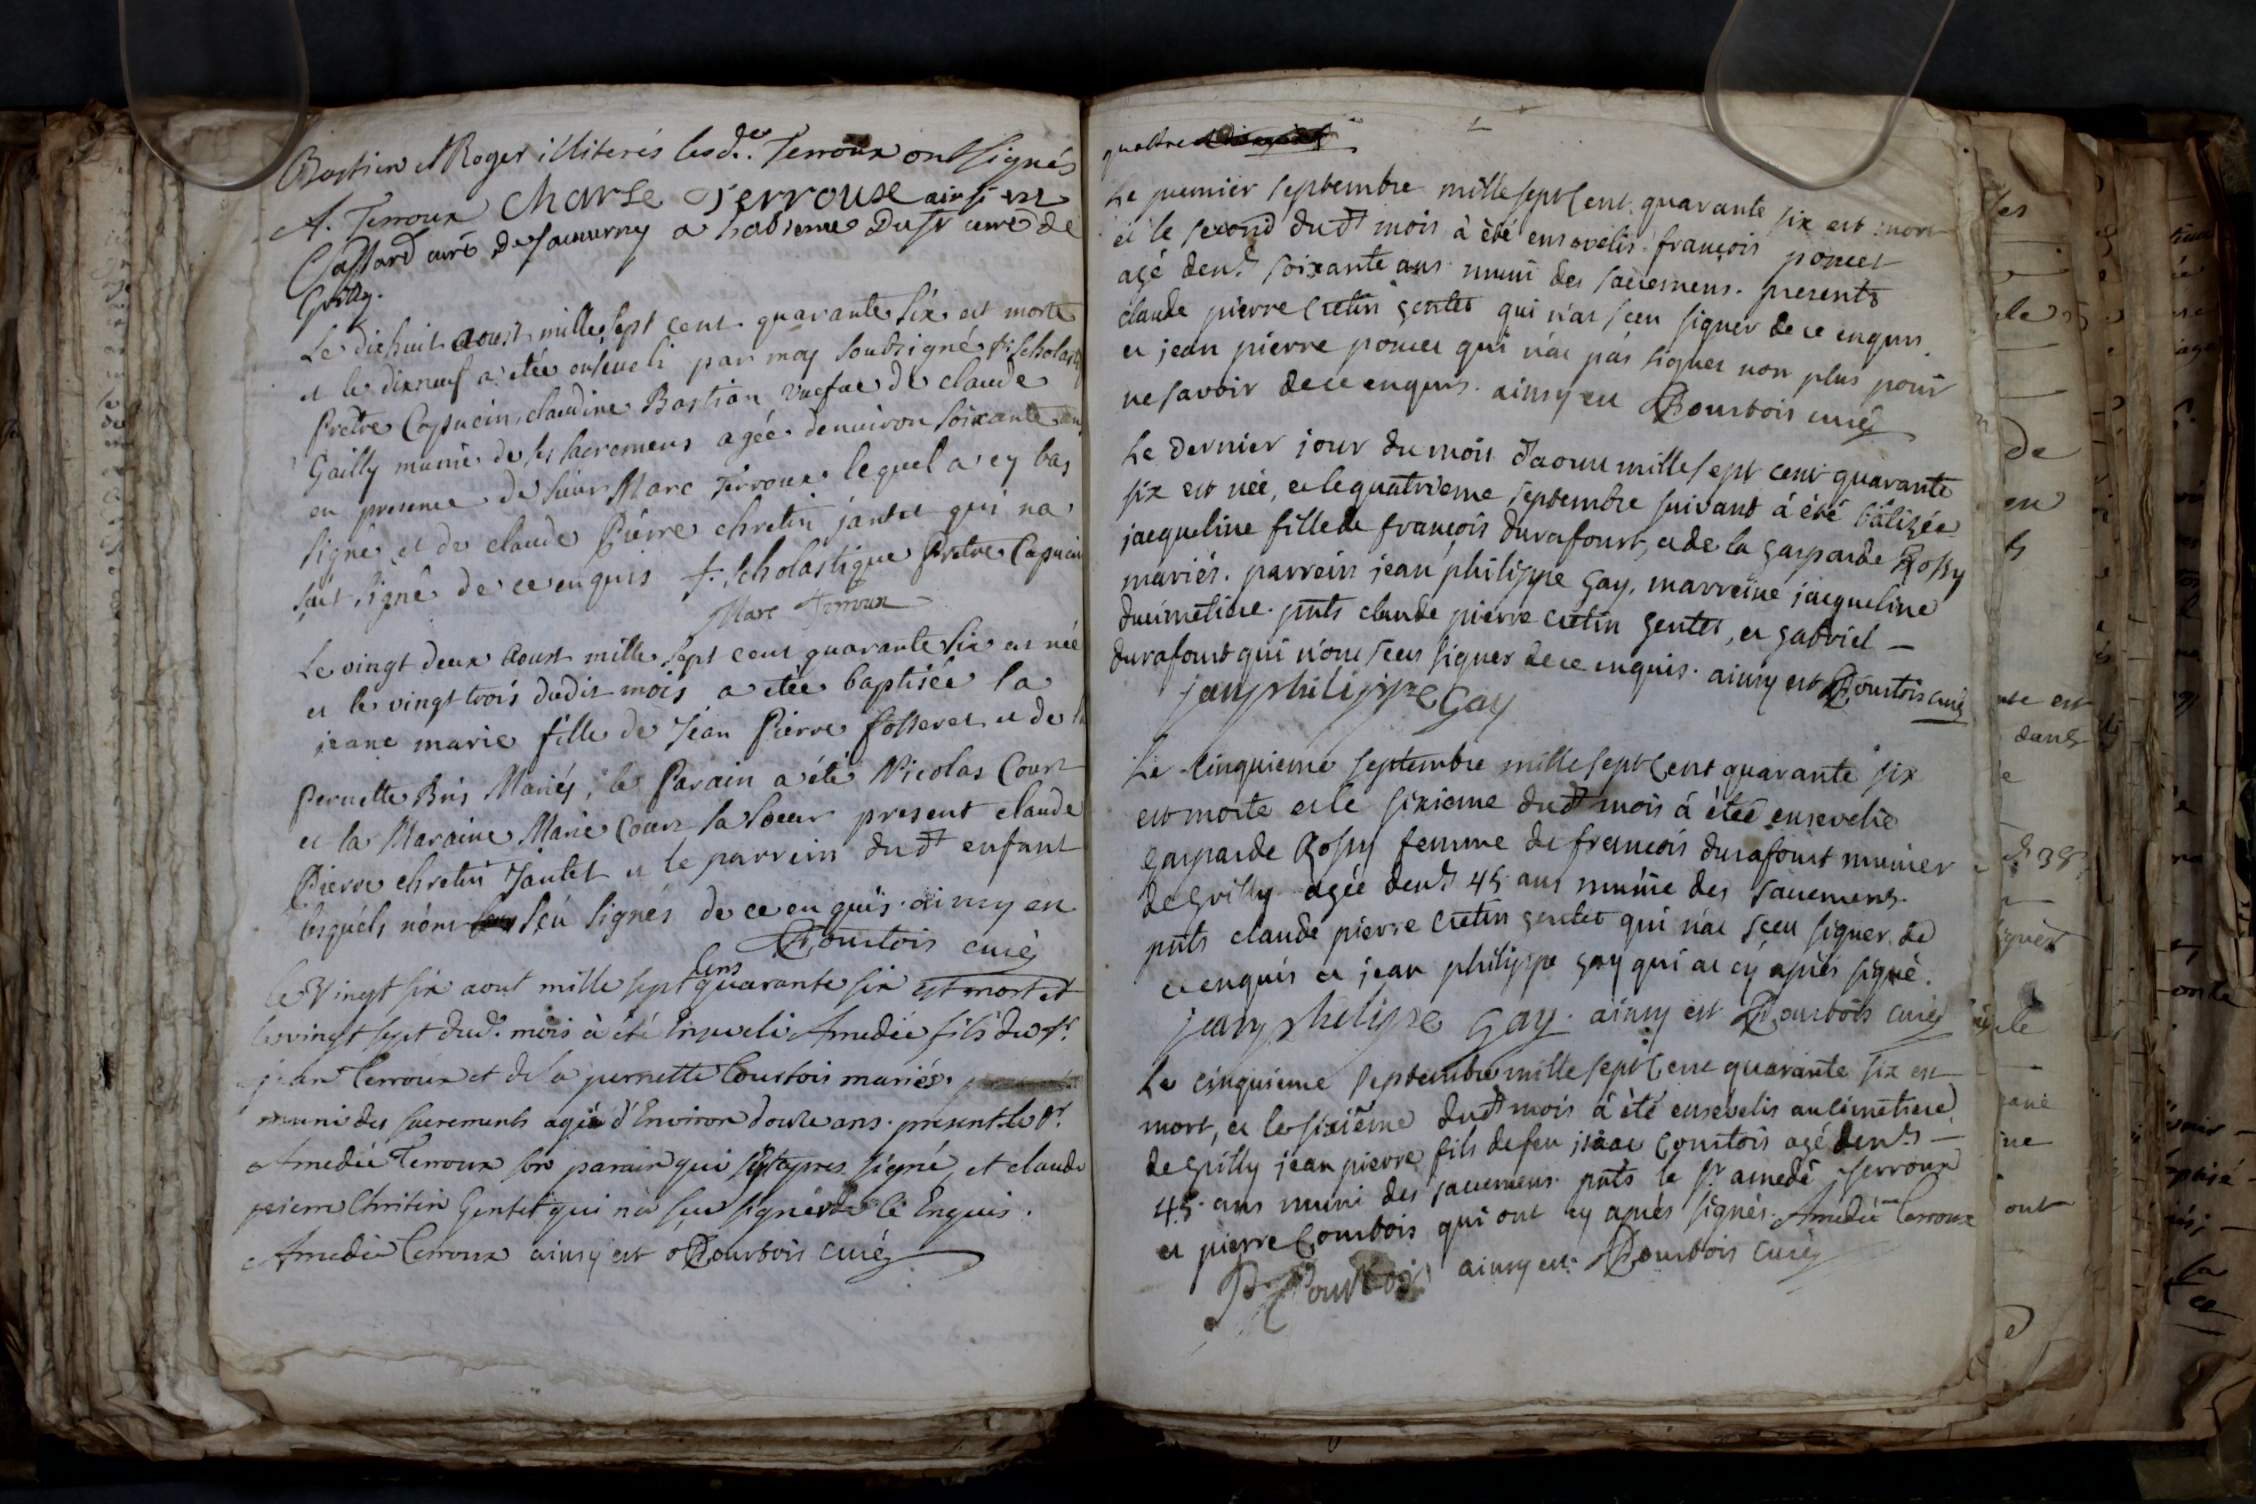 Bastien et Roger illiterés lesdts. Terroux ont signés
A. Terroux Charle Terroux ainsi est
Cassard curé de Sauverny a l'absence du Sr curé de
Grilly.
Le dixhuit aoust mille sept cent quarante six est morte
et le dixneuf a etée enseveli par moy soussigné f. scholastiq
Pretre Capucin, claudine Bastian de claude
Gailly munie de ses sacremens agée denuiron soixante ans
en presence de sieur Marc Terroux lequel a cy bas
signé et de claude Pierre chretin jantet qui na
sçut signé de ce enquis f. Scholastique Pretre Capucin
Marc Terroux
Le vingt deux Aoust mille sept cent quarante six est née
et le vingt trois dudit mois a etée baptisée la
jeane marie fille de Jéan Pierre fosseret et de la
Pernette Bris Mariés, le Parain a été Nicolas Court
et la Maraine Marie Court sa soeur present claude
Pierre chretin Jantet et le parrein dudt enfant
lesquels n'ont sçu signés de ce enquis. ainsy est
Courtois curé
le Vingt six aout mille sept cens quarante six est mort et
le vingt sept dud. mois à été Enseveli Amedée fils du sr.
jean Terroux et de la pernette Courtois mariés.
muni des sacrements agée d'Environ douze ans. present le sr.
Amedée Terroux son parain qui apres signé, et claude
pierre Chritin Gentet qui n'a sçu signér de Ce Enquis.
Amedée Terroux ainsy est Courtois curé
quattre
Le premier septembre mille sept Cent quarante six est mort
et le second dudt mois à été ensevelis françois poncet
agé dens soixante ans muni des sacremens. presents
claude pierre Cretin gentet qui n'at sceu signer de ce enquis
et jean pierre poncet qui n'at pas signer non plus pour
ne savoir de ce enquis. ainsy est Courtois curé
Le dernier jour du mois d'aout mille sept cent quarante
six est née, et le quatrieme septembre suivant à été batizée
jacqueline fille de françois durafourt, et de la gasparde Rossy
mariés. parrein jean philippe Gay, marreine jacqueline
ducimetiere. pnts claude pierre cretin gentet, et gabriel –
durafourt qui n'ont sceu signer de ce enquis. ainsy est Courtois curé
jean philippe Gay
Le cinquieme septembre mille sept Cent quarante six
est morte et le sixieme dudt mois à étéé ensevelie
gasparde Rossy femme de françois durafourt munier
de Grilly agée dens 45 ans muniie des sacremens.
pnts claude pierre Cretin gentet qui n'at sceu signer de
ce enquis et jean philippe gay qui at cy après signé.
jean philippe Gay. ainsy est Courtois curé
Le cinquieme septembre mille sept Cent quarante six est
mort, et le sixiéme dudt mois à été ensevelis au cimetiere
de Grilly jean pierre fils de feu isaac Courtois agé dens –
45 ans muni des sacremens. pnts le sr. amedé Terroux
et pierre Courtois qui ont cy après signés. Amedée Terroux
P. Courtois ainsy est. Courtois curé